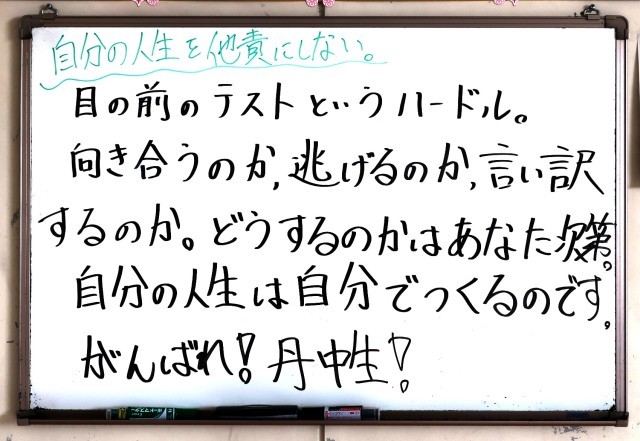 自分の人生を他責にしない。
目の前のテストというハードル。
向き合うのか,逃げるのか,言い訳
するのか。どうするのかはあなた次第。
自分の人生は自分でつくるのです。
がんばれ!丹中生!